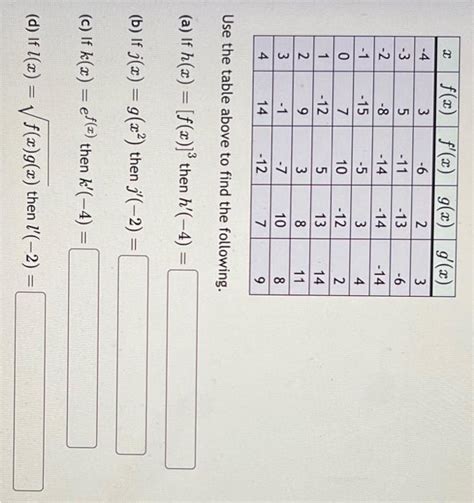 x f(x) f'(x) g(x) g'(x)
-4 3 -6 2 3
-3 5 -11 -13 -6
-2 -8 -14 -14 -14
-1 -15 -5 3 4
0 7 10 -12 2
1 -12 5 13 14
2 9 3 8 11
3 -1 -7 10 8
4 14 -12 7 9
Use the table above to find the following.
(a) If h(x) = [f(x)]³ then h'(-4) =
(b) If j(x) = g(x²) then j'(-2) =
(c) If k(x) = e^{f(x)} then k'(-4) =
(d) If l(x) = √f(x)g(x) then l'(-2) =